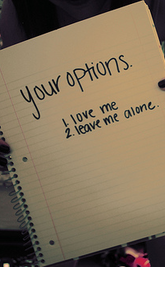 your options.
1. love me
2. leave me alone.